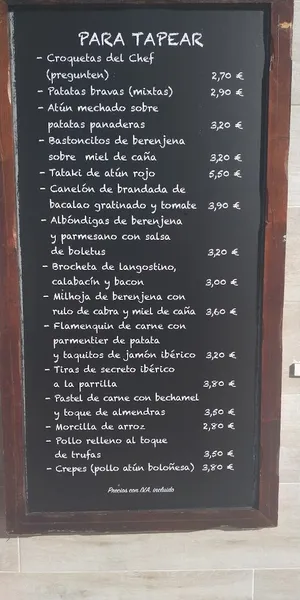 PARA TAPEAR
- Croquetas del Chef
(pregunten) 2,70 €
- Patatas bravas (mixtas) 2,90 €
- Atún mechado sobre
patatas panaderas 3,20 €
- Bastoncitos de berenjena
sobre miel de caña 3,20 €
- Tataki de atún rojo 5,50 €
- Canelón de brandada de
bacalao gratinado y tomate 3,90 €
- Albóndigas de berenjena
y parmesano con salsa
de boletus 3,20 €
- Brocheta de langostino,
calabacín y bacon 3,00 €
- Milhoja de berenjena con
rulo de cabra y miel de caña 3,60 €
- Flamenquin de carne con
parmentier de patata
y taquitos de jamón ibérico 3,20 €
- Tiras de secreto ibérico
a la parrilla 3,80 €
- Pastel de carne con bechamel
y toque de almendras 3,50 €
- Morcilla de arroz 2,80 €
- Pollo relleno al toque
de trufas 3,50 €
- Crepes (pollo atún boloñesa) 3,80 €
Precios con IVA incluido